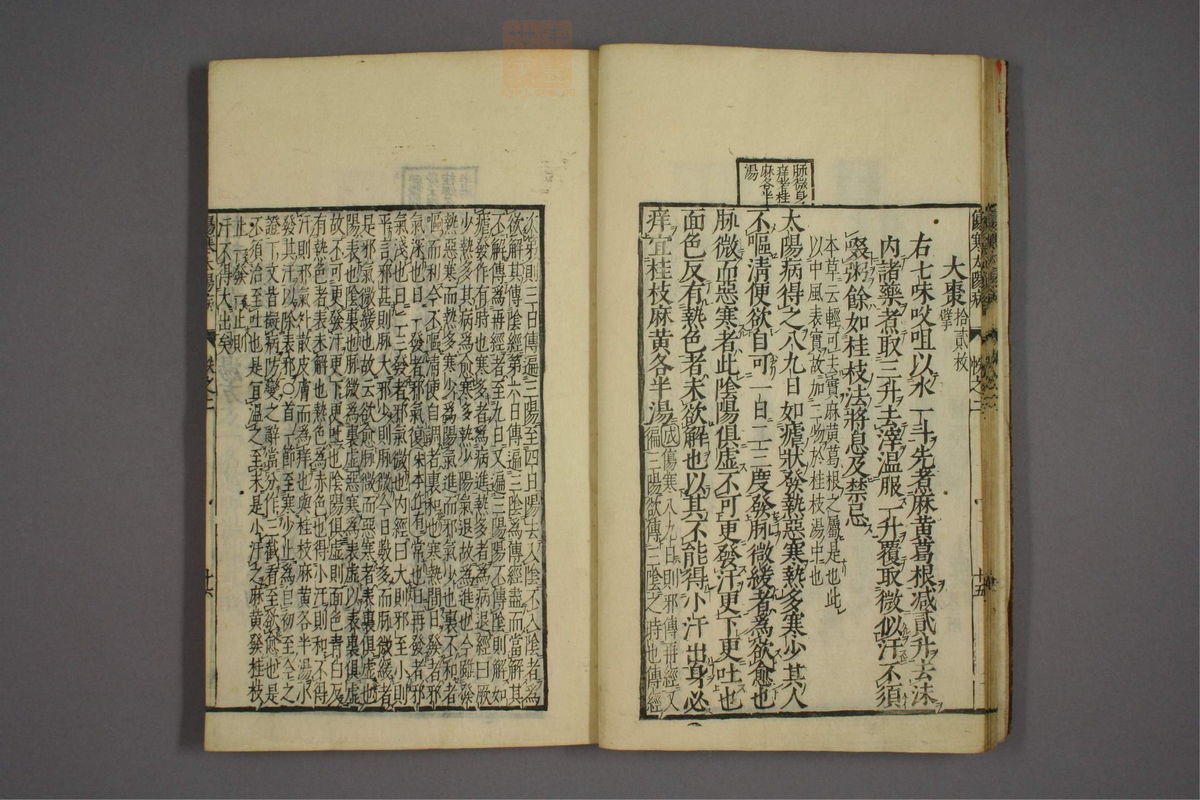 傷寒太陽病
大棗拾貳枚擘
右七味㕮咀以水一斗先煮麻黃葛根减貳升去沫
内諸藥煮取三升去滓溫服一升覆取微似汗不須
啜粥餘如桂枝法將息及禁忌
本草云輕可去實麻黃葛根之屬是也此
以中風表實故加二物於桂枝湯中也
脉微身
痒者桂
麻各半
湯
太陽病得之八九日如瘧狀發熱惡寒熱多寒少其人
不嘔清便欲自可一日二三度發脉微緩者爲欲愈也
脉微而惡寒者此陰陽俱虛不可更發汗更下更吐也
面色反有熱色者未欲解也以其不能得小汗出身必
痒宜桂枝麻黃各半湯
成傷寒八九日則邪傳再經又
徧三陽欲傳三陰之時也傳經
次第則三日傳遍三陽至四日陽去入陰不入陰者爲
欲解其傳陰經第六日傳遍三陰爲傳經盡而當解其
不解傳爲再經者至九日又遍三陽陽不傳陰則解如
瘧發作有時也寒多者爲病進熱多者爲病退經曰厥
少熱多其病爲愈寒多熱少陽氣退故爲進也今雖發
熱惡寒而熱多寒少爲陽氣進而邪氣少也裏不和者
嘔而利今不嘔清便自調者裏和也寒熱間日發者邪
氣深也日一發者邪氣復本位也日再發者邪
氣淺也日二三發者邪氣微也内經曰大則邪至小則
平言邪甚則脉大邪少則脉微今日數多而脉微緩者
是邪氣微緩也故云欲愈脉微而惡寒者表裏俱虛也
陽表也陰裏也脉微爲裏虛惡寒爲表虛以表裏俱虛
故不可更發汗更下更吐也陰陽俱虛則面色青白反
有熱色者表未解也熱色爲赤色也得小汗則和不得
汗則邪氣外散皮膚而爲痒也與桂枝麻黃各半湯小
發其汗以除表邪○首一節至寒少止爲自初至今之
證下文皆擬病防變之辭當分作三截看至欲愈也是
不須治至吐也是宜溫之至末是小汗之麻黃發桂枝
汗不得大出矣